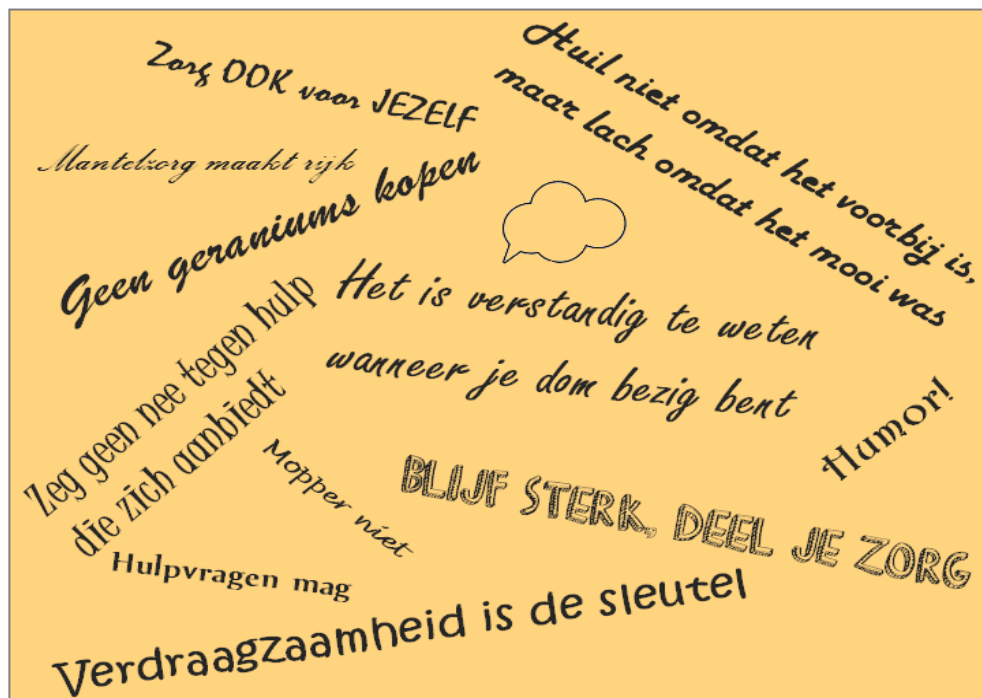 Zorg OOK voor JEZELF
Huil niet omdat het voorbij is,
maar lach omdat het mooi was
Mantelzorg maakt rijk
Geen geraniums kopen
Het is verstandig te weten
wanneer je dom bezig bent
Zeg geen nee tegen hulp
die zich aanbiedt
Humor!
Mopper niet
BLIJF STERK, DEEL JE ZORG
Hulpvragen mag
Verdraagzaamheid is de sleutel